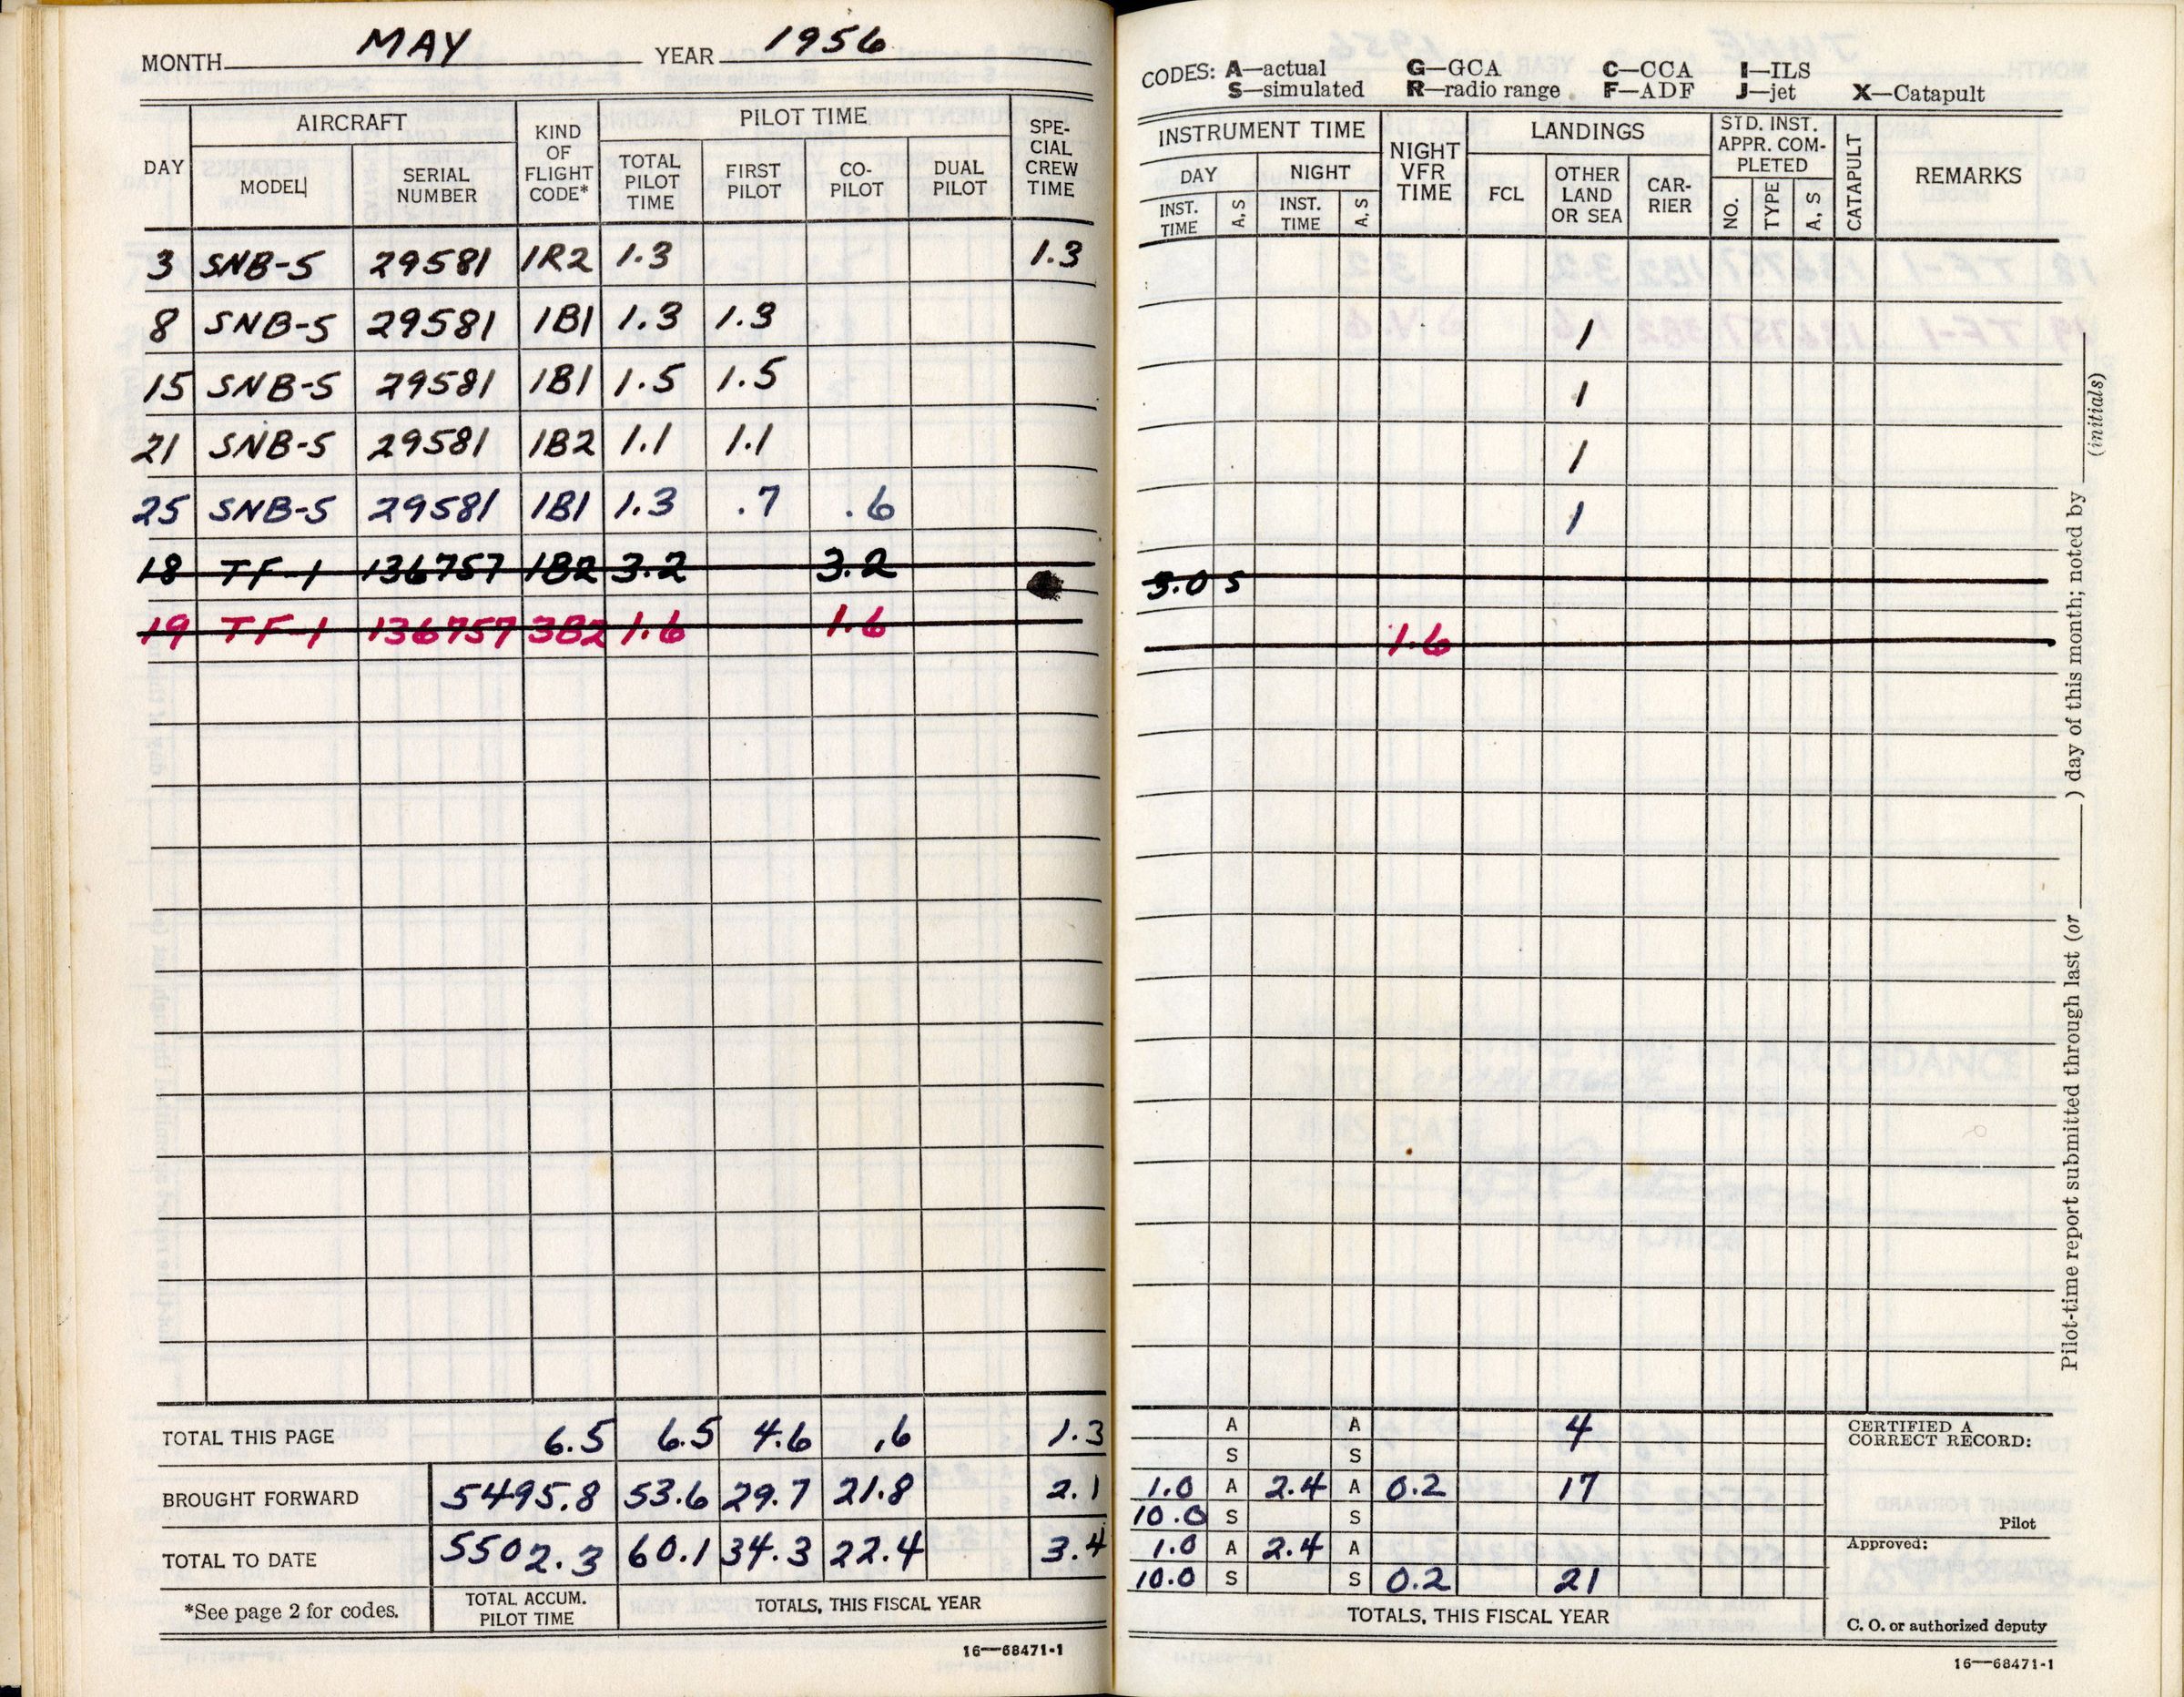 MONTH MAY YEAR 1956
DAY AIRCRAFT KIND OF FLIGHT CODE* PILOT TIME SPE-CIAL CREW TIME
MODEL SERIAL NUMBER TOTAL PILOT TIME FIRST PILOT CO-PILOT DUAL PILOT
3 SNB-5 29581 1R2 1.3 1.3
8 SNB-5 29581 1B1 1.3 1.3
15 SNB-5 29581 1B1 1.5 1.5
21 SNB-5 29581 1B2 1.1 1.1
25 SNB-5 29581 1B1 1.3 .7 .6
18 TF-1 136757 1B2 3.2 3.2
19 TF-1 136757 3B2 1.6 1.6
TOTAL THIS PAGE 6.5 6.5 4.6 .6 1.3
BROUGHT FORWARD 5495.8 53.6 29.7 21.8 2.1
TOTAL TO DATE 5502.3 60.1 34.3 22.4 3.4
*See page 2 for codes. TOTAL ACCUM. PILOT TIME TOTALS, THIS FISCAL YEAR
16—68471-1
CODES: A—actual G—GCA C—CCA I—ILS
S—simulated R—radio range F—ADF J—jet X—Catapult
INSTRUMENT TIME NIGHT VFR TIME LANDINGS STD. INST. APPR. COM-PLETED CATAPULT REMARKS
DAY NIGHT FCL OTHER LAND OR SEA CAR-RIER NO. TYPE A, S
INST. TIME A, S INST. TIME A, S
1
1
1
1
3.0 S
1.6
A A 4 CERTIFIED A CORRECT RECORD:
S S
1.0 A 2.4 A 0.2 17
10.0 S S Pilot
1.0 A 2.4 A Approved:
10.0 S S 0.2 21
TOTALS, THIS FISCAL YEAR C. O. or authorized deputy
16—68471-1
Pilot-time report submitted through last (or ) day of this month; noted by
(initials)